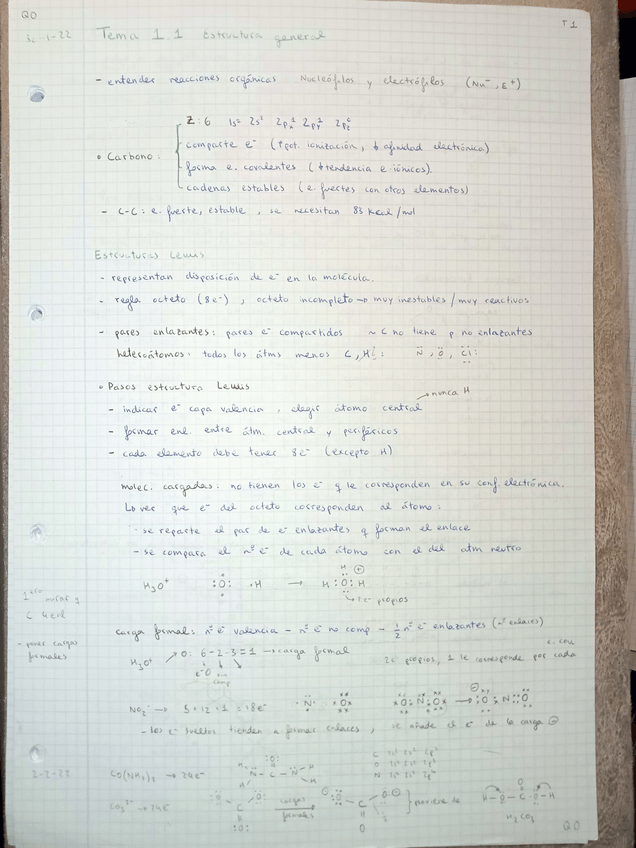 QO
T1
31-1-22 Tema 1.1 Estructura general
- entender reacciones orgánicas Nucleófilos y electrófilos (Nu⁻, E⁺)
Z: 6 1s² 2s² 2px¹ 2py¹ 2pz⁰
comparte e⁻ (↑pot. ionización, ↓ afinidad electrónica)
• Carbono:
forma e. covalentes (↓tendencia e. iónicos).
cadenas estables (e. fuertes con otros elementos)
- C-C: e. fuerte, estable, se necesitan 83 Kcal/mol
Estructuras Lewis
- representan disposición de e⁻ en la molécula.
- regla octeto (8e⁻), octeto incompleto → muy inestables / muy reactivos
- pares enlazantes: pares e⁻ compartidos ~ C no tiene p no enlazantes
heteroátomos: todos los átms menos C, H N, O, Cl:
• Pasos estructura Lewis
nunca H
- indicar e⁻ capa valencia, elegir átomo central
- formar enl. entre átm. central y periféricos
- cada elemento debe tener 8e⁻ (excepto H)
molec. cargadas: no tienen los e⁻ q le corresponden en su conf. electrónica.
Lo ver que e⁻ del octeto corresponden al átomo:
- se reparte el par de e⁻ enlazantes q forman el enlace
- se compara el nº e⁻ de cada átomo con el del atm neutro
H₃O⁺ :O: ·H → H:O:H H ⊕
e⁻ propios
1ero mirar q
C 4 enl
- poner cargas
formales
carga formal: nº e⁻ valencia - nº e⁻ no comp - ½ nº e⁻ enlazantes (nº enlaces)
H₃O⁺ O: 6-2-3=1 → carga formal
2e⁻ propios, 1 le corresponde por cada
NO₂⁻ → 5+12+1=18e⁻ ·N· O O N O → ⊖ O N O
- los e⁻ sueltos tienden a formar enlaces, se añade el e⁻ de la carga ⊖
2-2-22
CO(NH₂)₂ → 24e⁻
C 1s² 2s² 2p²
O 1s² 2s² 2p⁴
N 1s² 2s² 2p³
CO₃²⁻ → 24e⁻
cargas
formales
H₂CO₃
QO